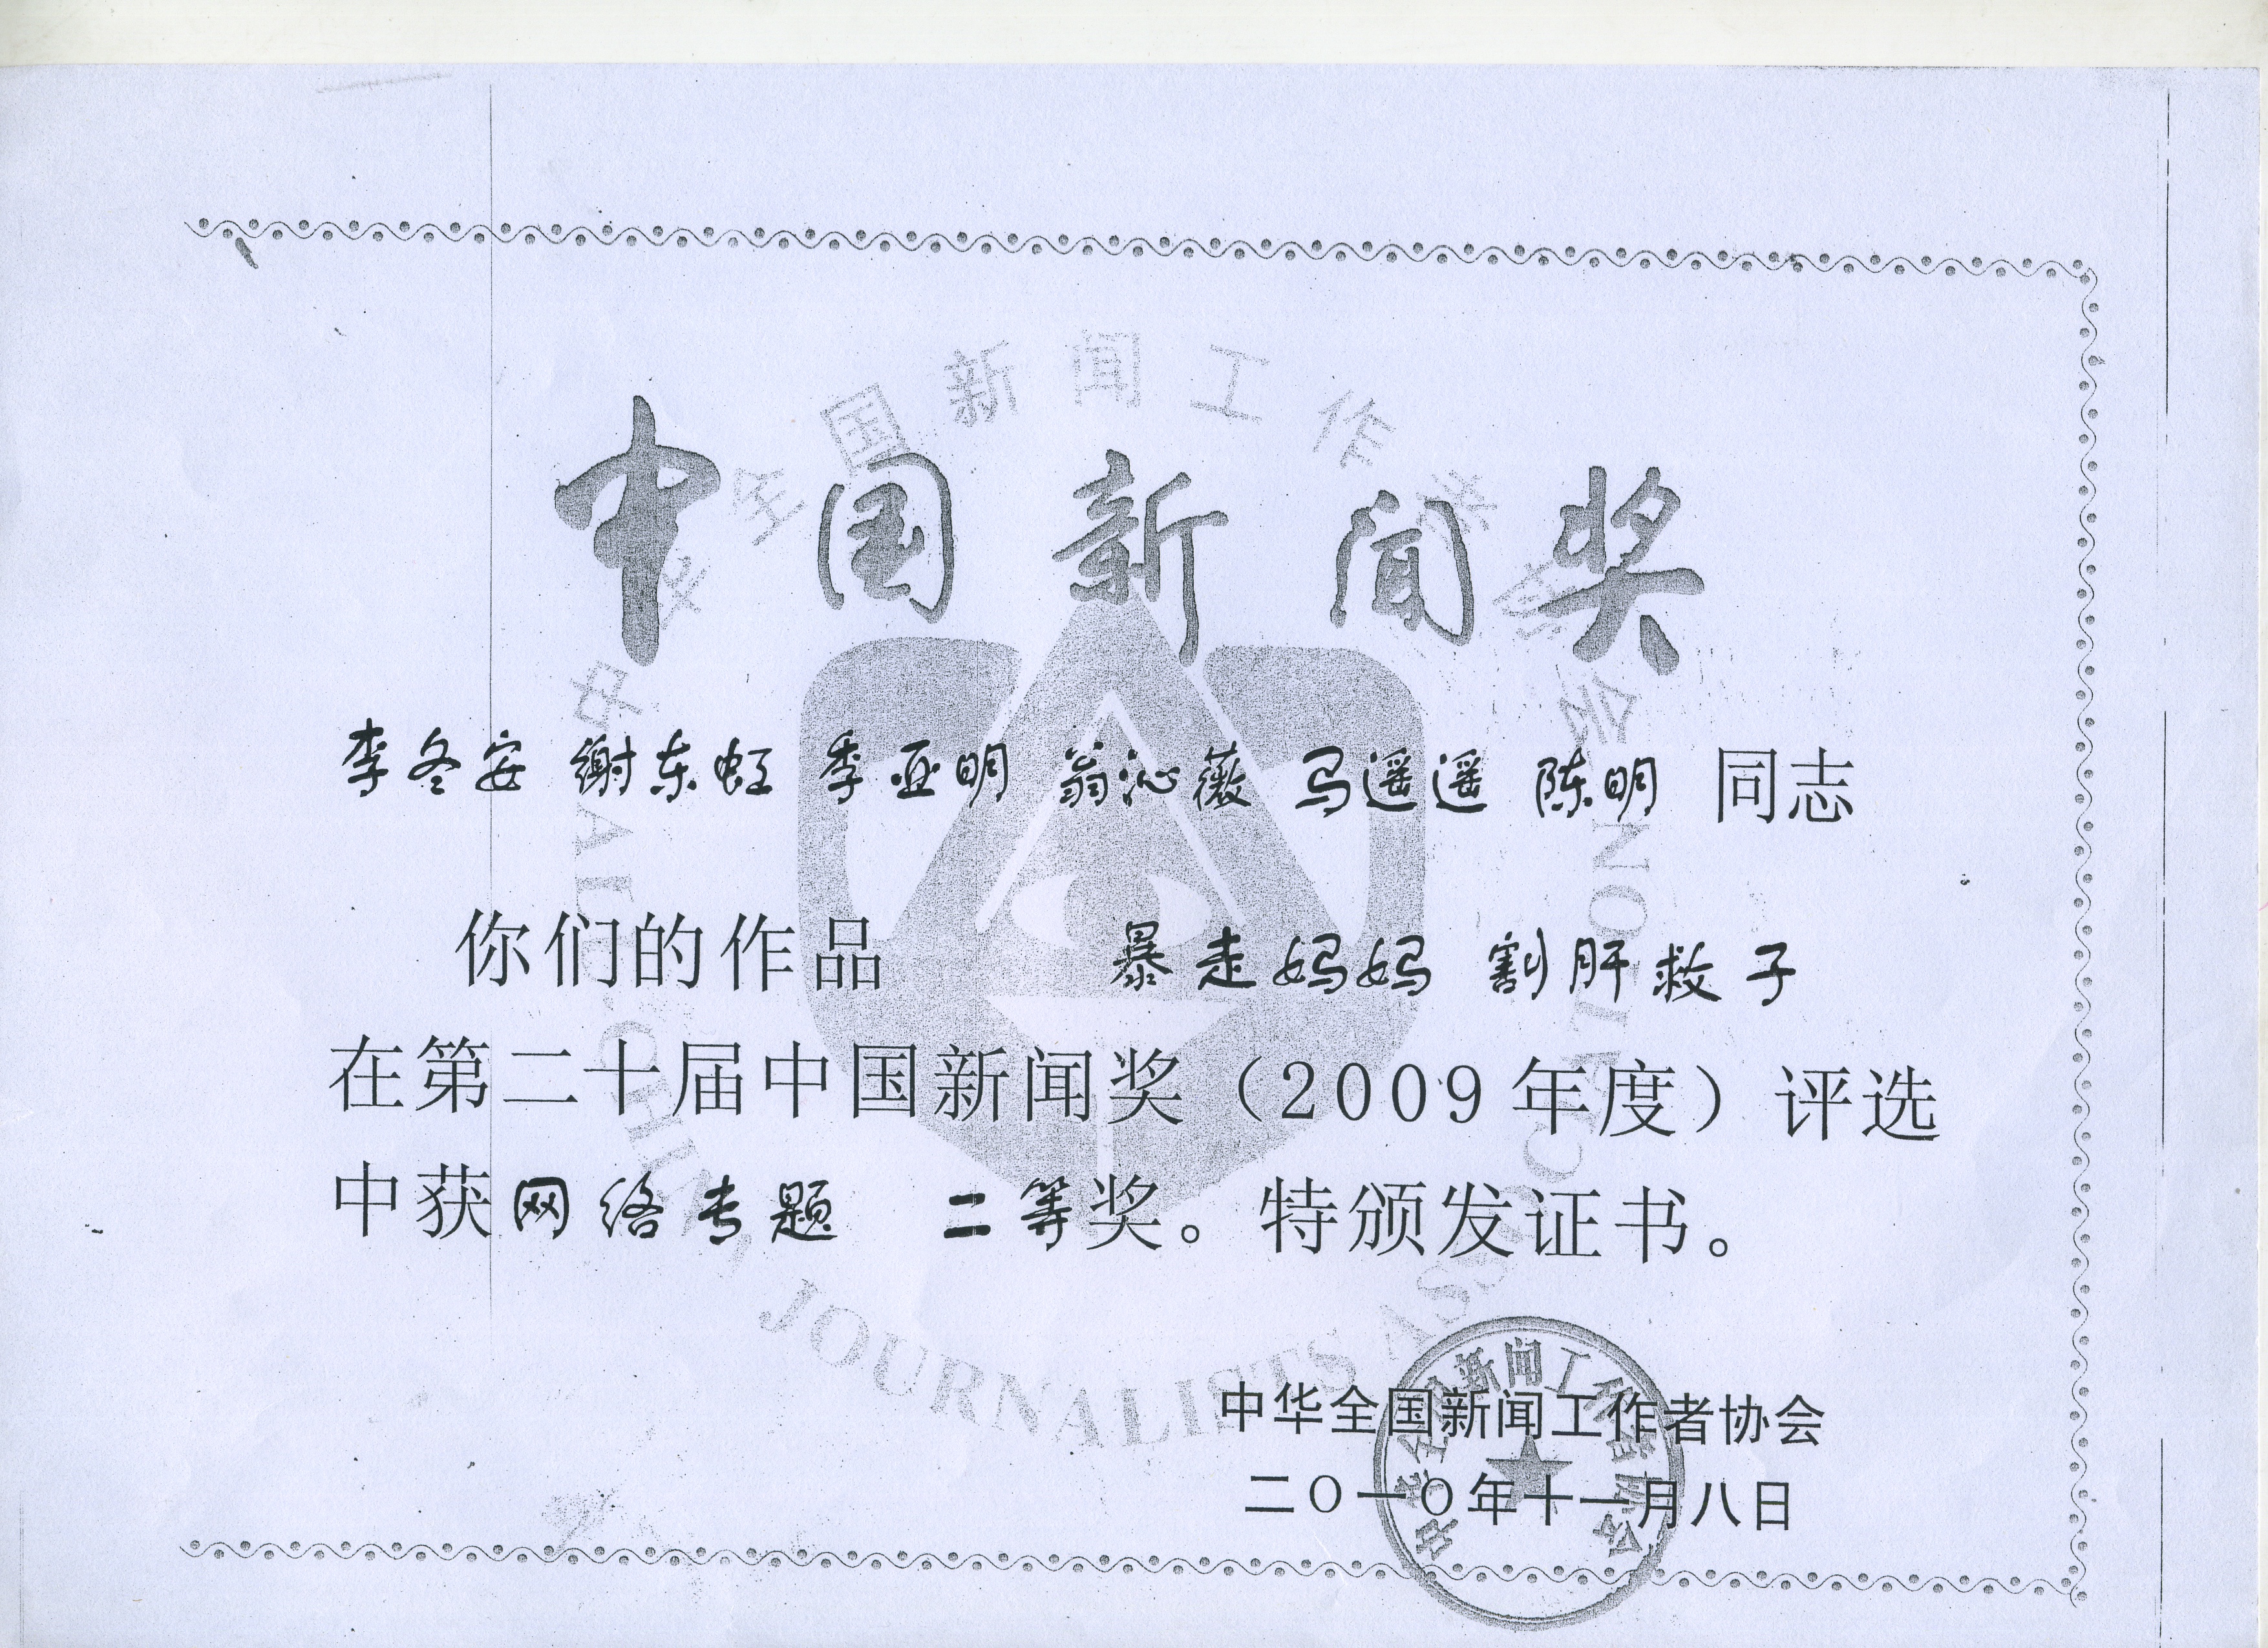 中国新闻奖
李冬安 谢东虹 季亚明 翁沁薇 马遥遥 陈明 同志
你们的作品 暴走妈妈 割肝救子
在第二十届中国新闻奖（2009年度）评选
中获网络专题 二等奖。特颁发证书。
中华全国新闻工作者协会
二〇一〇年十一月八日
中华全国新闻工作者协会
ALL-CHINA JOURNALISTS ASSOCIATION
中华全国新闻工作者协会